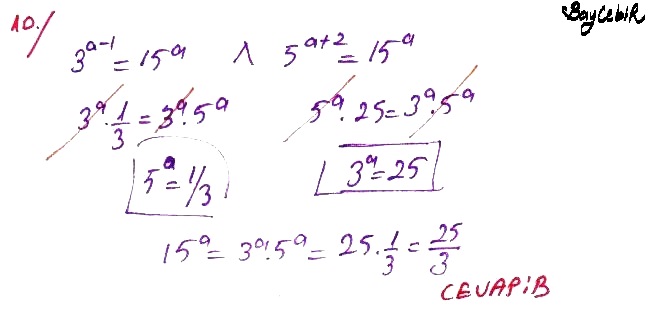 BayCebiR
10./
3^(a-1) = 15^a ∧ 5^(a+2) = 15^a
3^a · 1/3 = 3^a · 5^a 5^a · 25 = 3^a · 5^a
5^a = 1/3 3^a = 25
15^a = 3^a · 5^a = 25 · 1/3 = 25/3
CEVAP:B